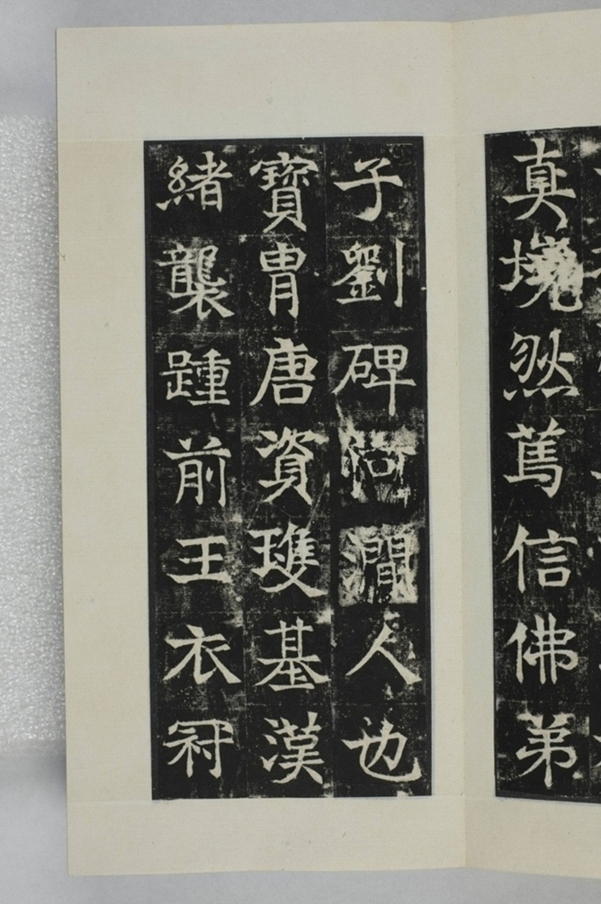 真境然篤信佛弟
子劉碑河澗人也
寶胄唐資基漢
緒襲踵前王衣冠